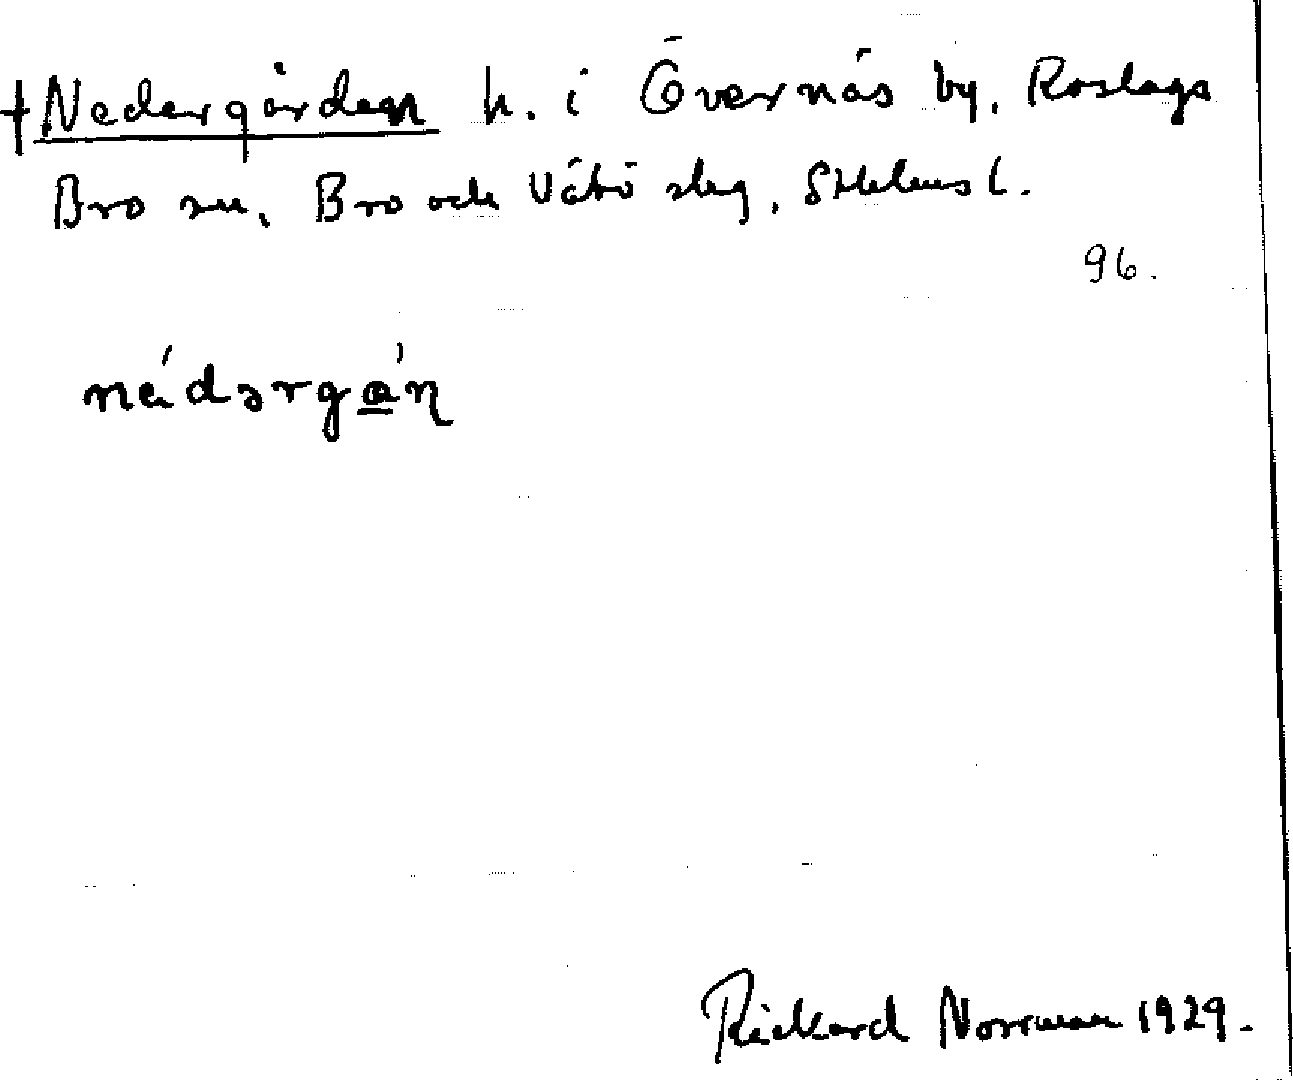 +Nedergården h. i Övernäs by, Roslags
Bro sn, Bro och Vätö slg, Sthlms l.
96.
nédərgán
Rickard Norrman 1929.